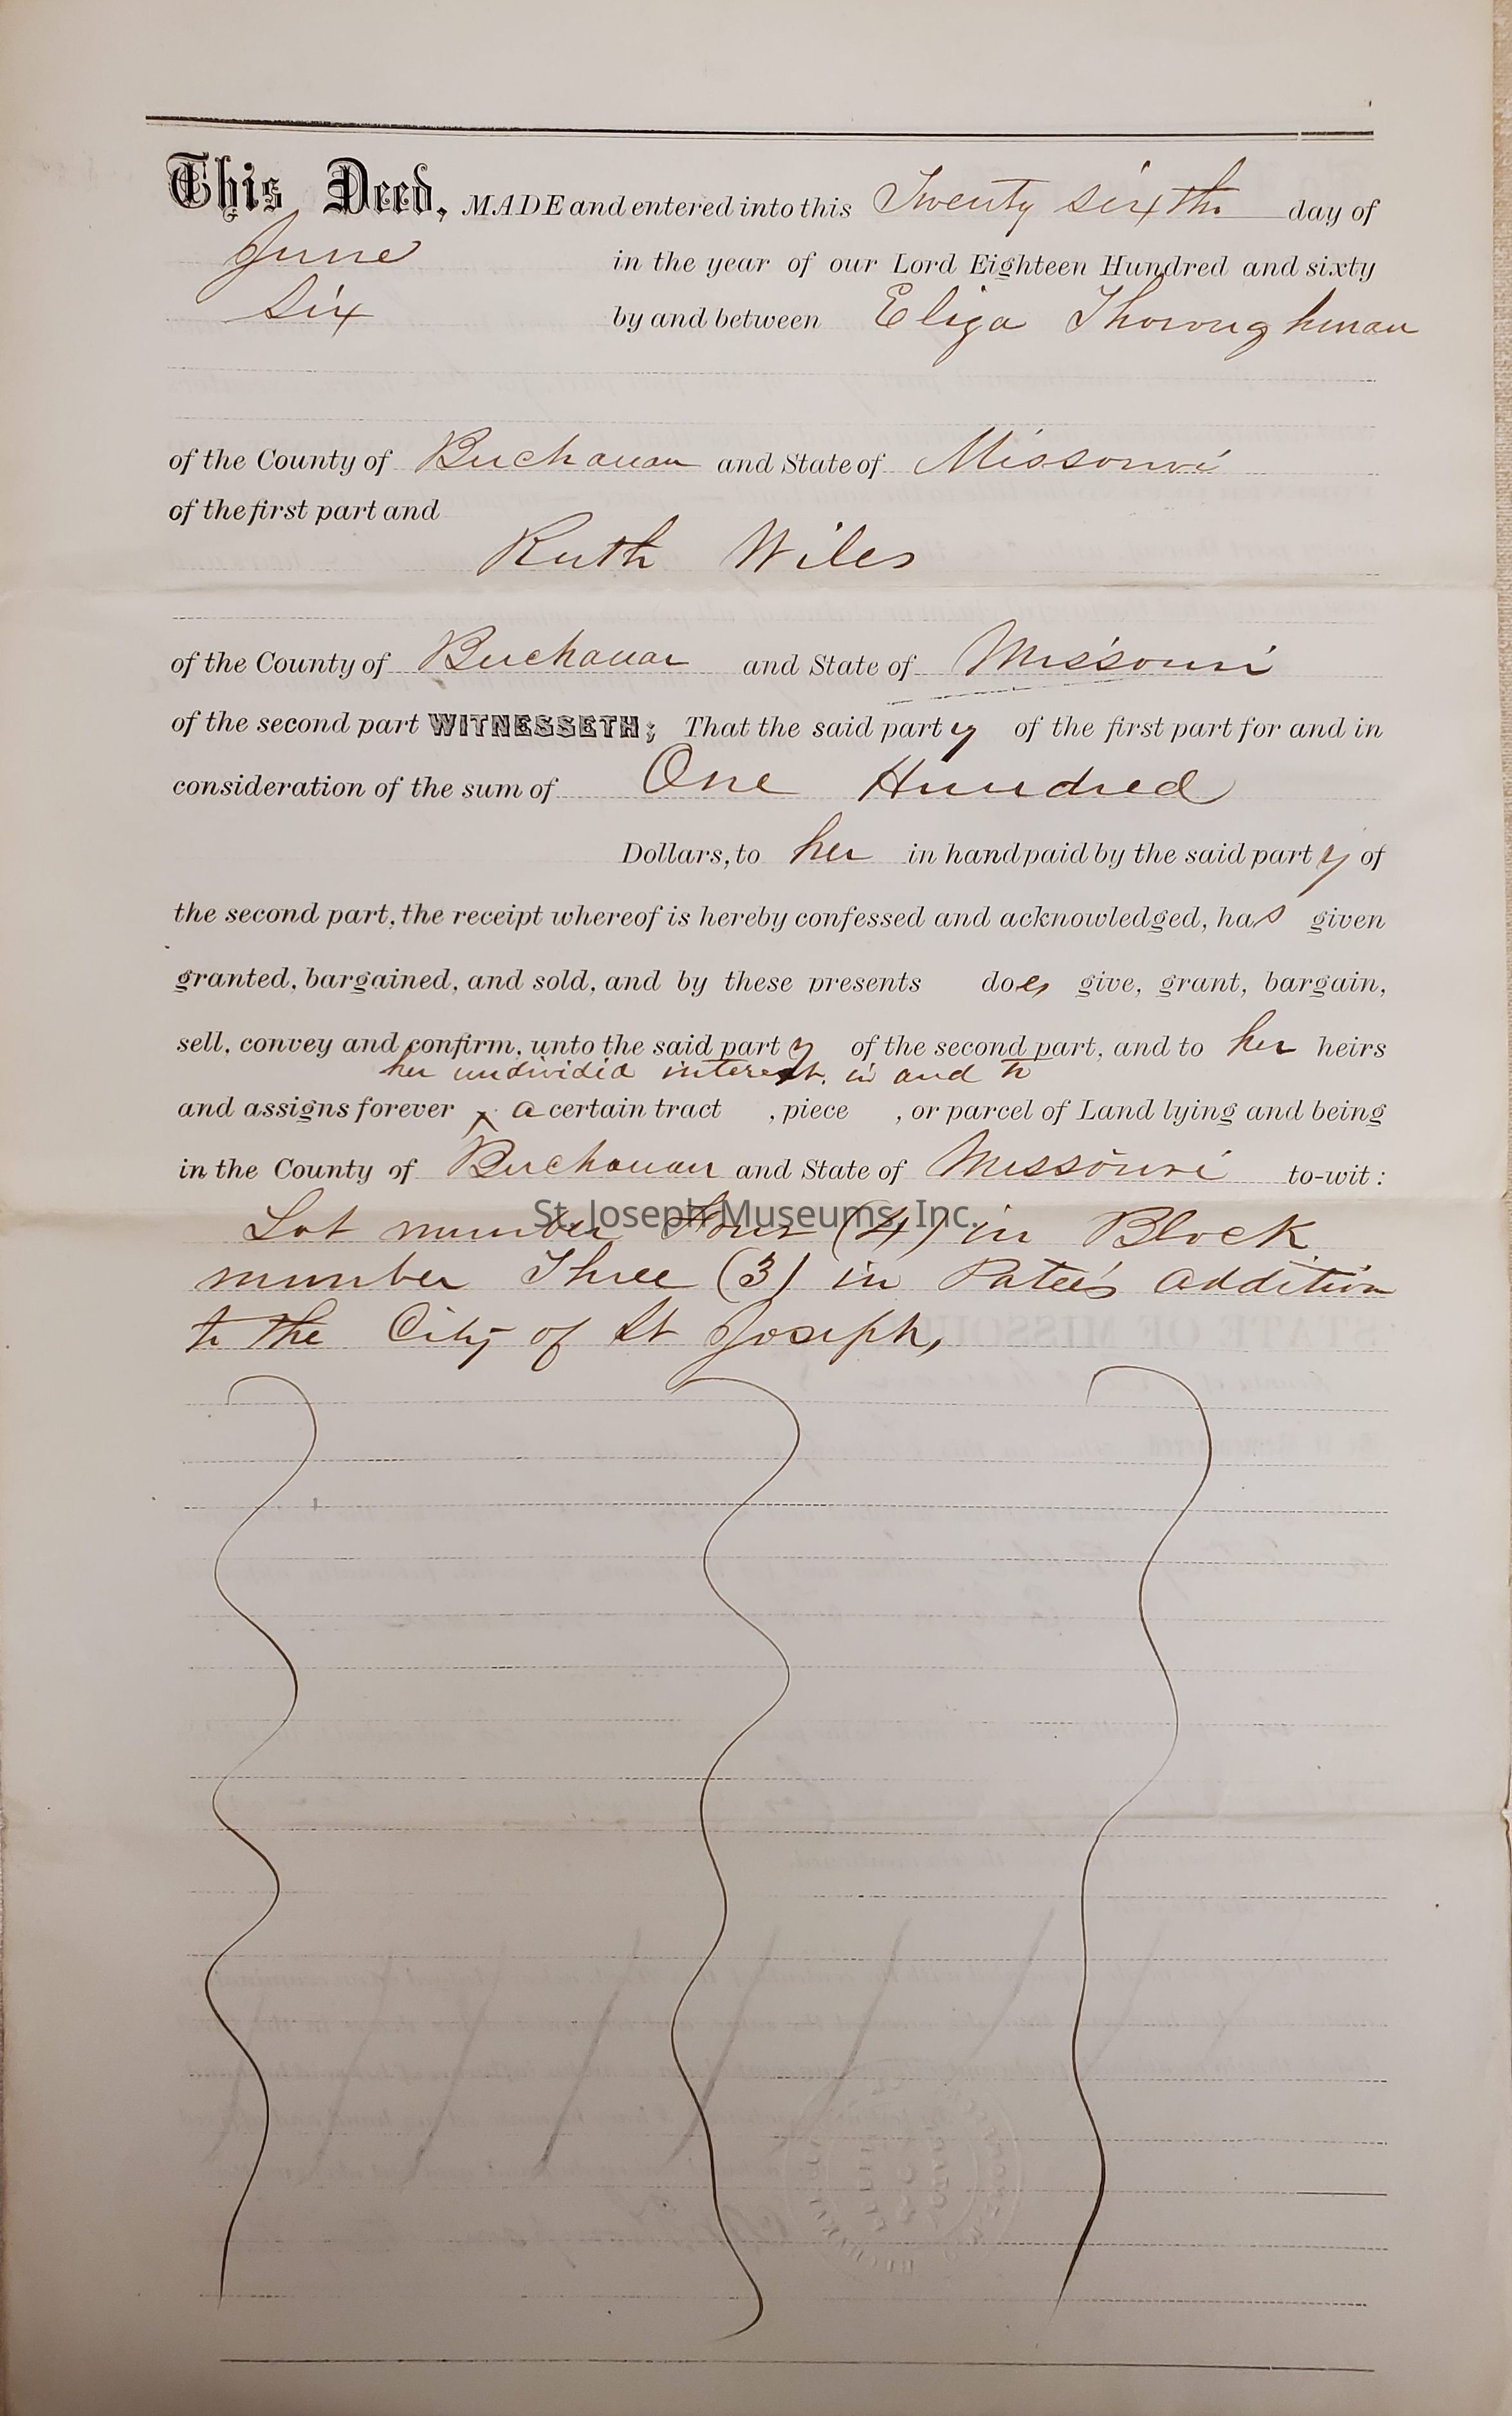 This Deed, MADE and entered into this Twenty sixth day of
June in the year of our Lord Eighteen Hundred and sixty
Six by and between Eliza Thoroughman
of the County of Buchanan and State of Missouri
of the first part and
Ruth Wiles
of the County of Buchanan and State of Missouri
of the second part WITNESSETH; That the said party of the first part for and in
consideration of the sum of One Hundred
Dollars, to her in hand paid by the said party of
the second part, the receipt whereof is hereby confessed and acknowledged, has given
granted, bargained, and sold, and by these presents does give, grant, bargain,
sell, convey and confirm, unto the said party of the second part, and to her heirs
her undivided interest. in and to
and assigns forever ^ a certain tract , piece , or parcel of Land lying and being
in the County of Buchanan and State of Missouri to-wit :
St. Joseph Museums, Inc.
Lot number Four (4) in Block
number Three (3) in Patee's addition
to the City of St Joseph,